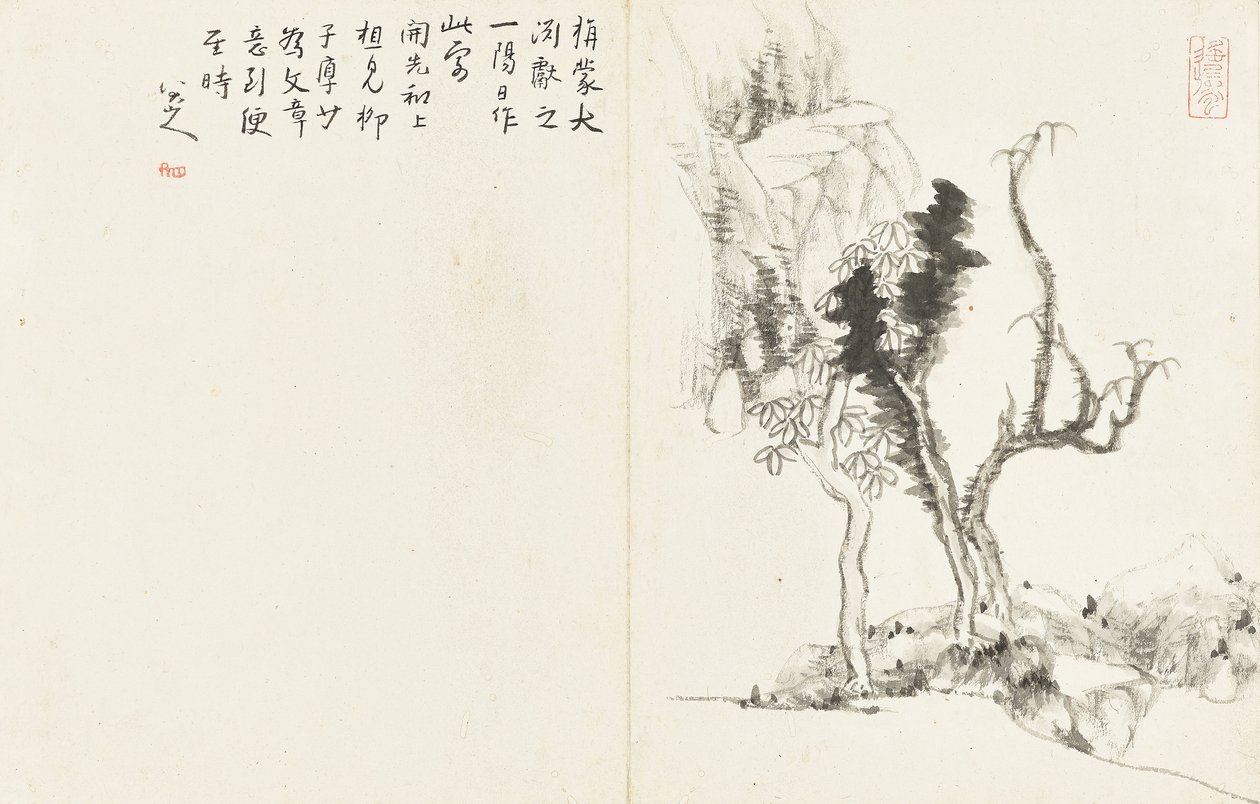 旃蒙大
渕獻之
一陽日作
此寄
開先和上
相見柳
子厚
為文章
意到便
至時
八大山人